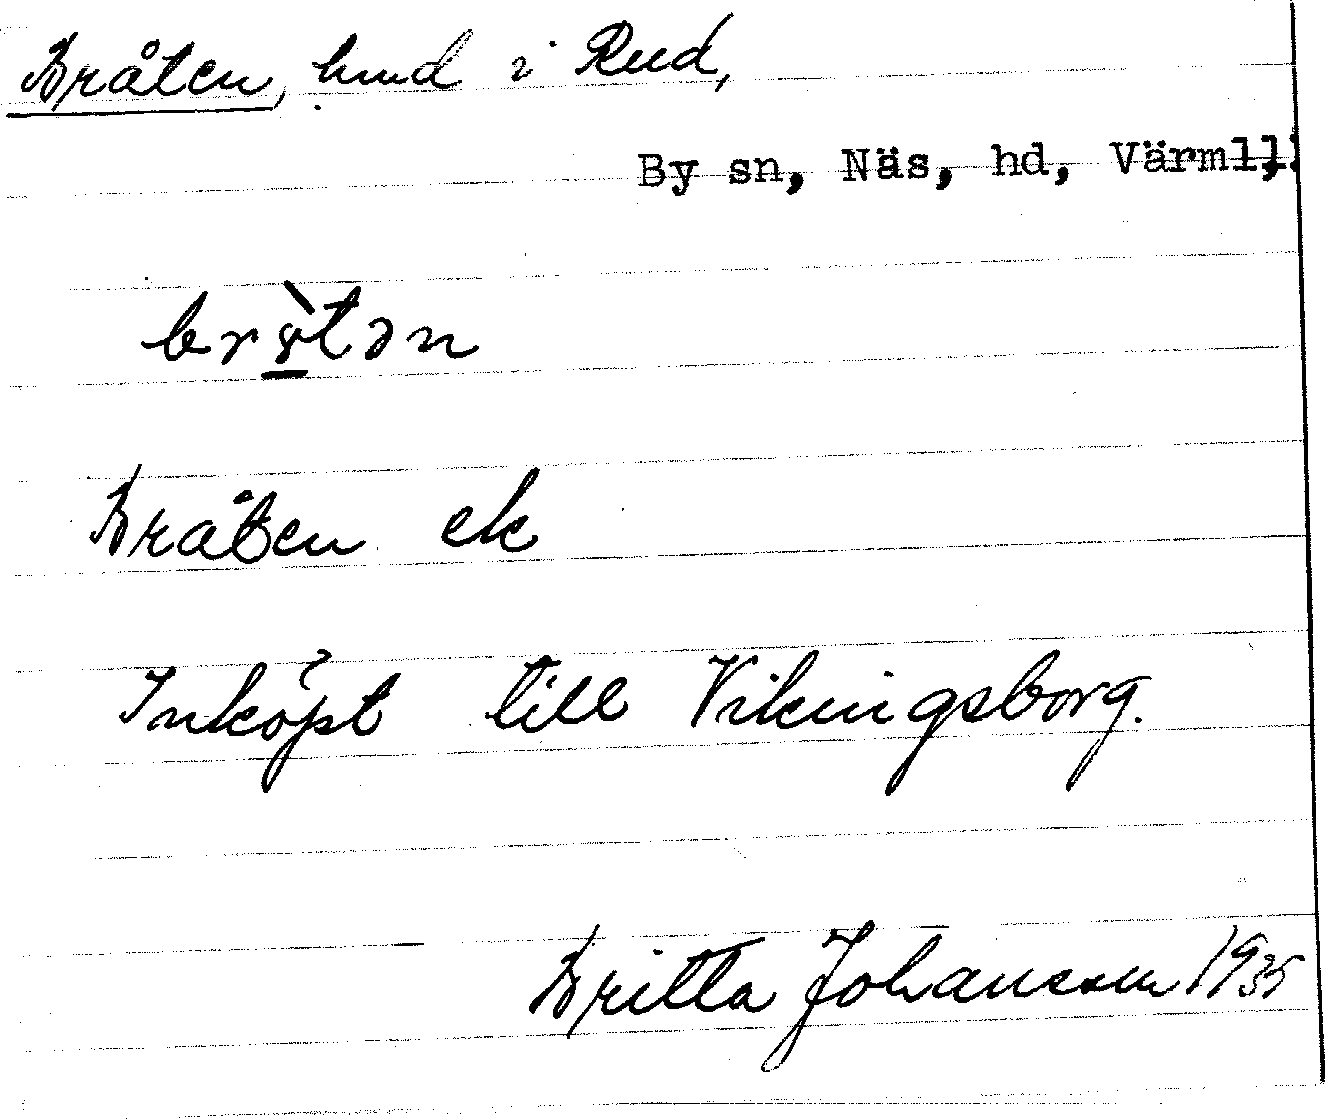 Bråten, hmd i Rud,
By sn, Näs, hd, Värml.
brɤ̀tən
Bråten ek
Inköpt till Vikingsborg.
Britta Johansson 1935